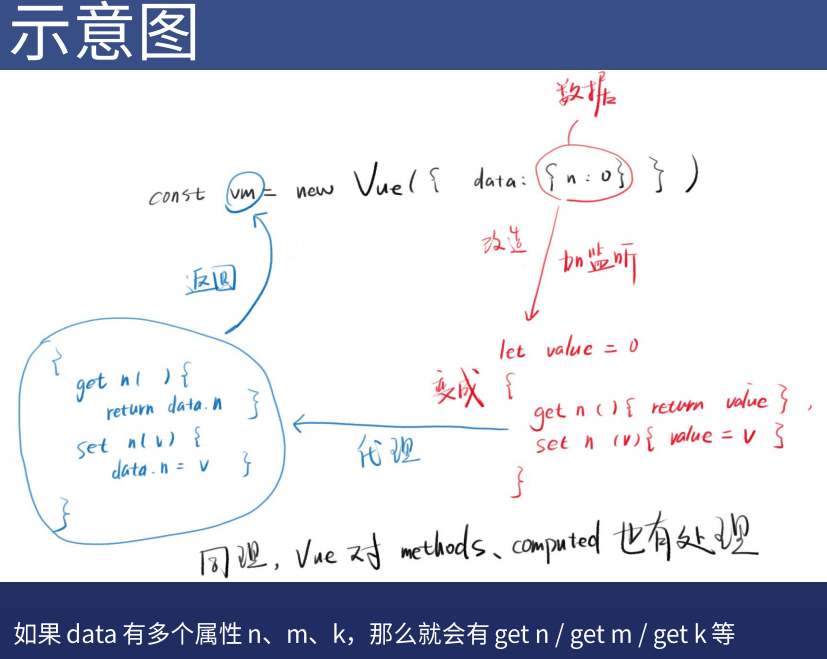 示意图
数据
const vm = new Vue({ data: {n:0} })
改造
加监听
返回
let value = 0
变成
{
get n(){ return value },
set n(v){ value = v }
}
代理
{
get n( ){
return data.n }
set n(v) {
data.n = v }
}
同理, Vue 对 methods、computed 也有处理
如果 data 有多个属性 n、m、k，那么就会有 get n / get m / get k 等